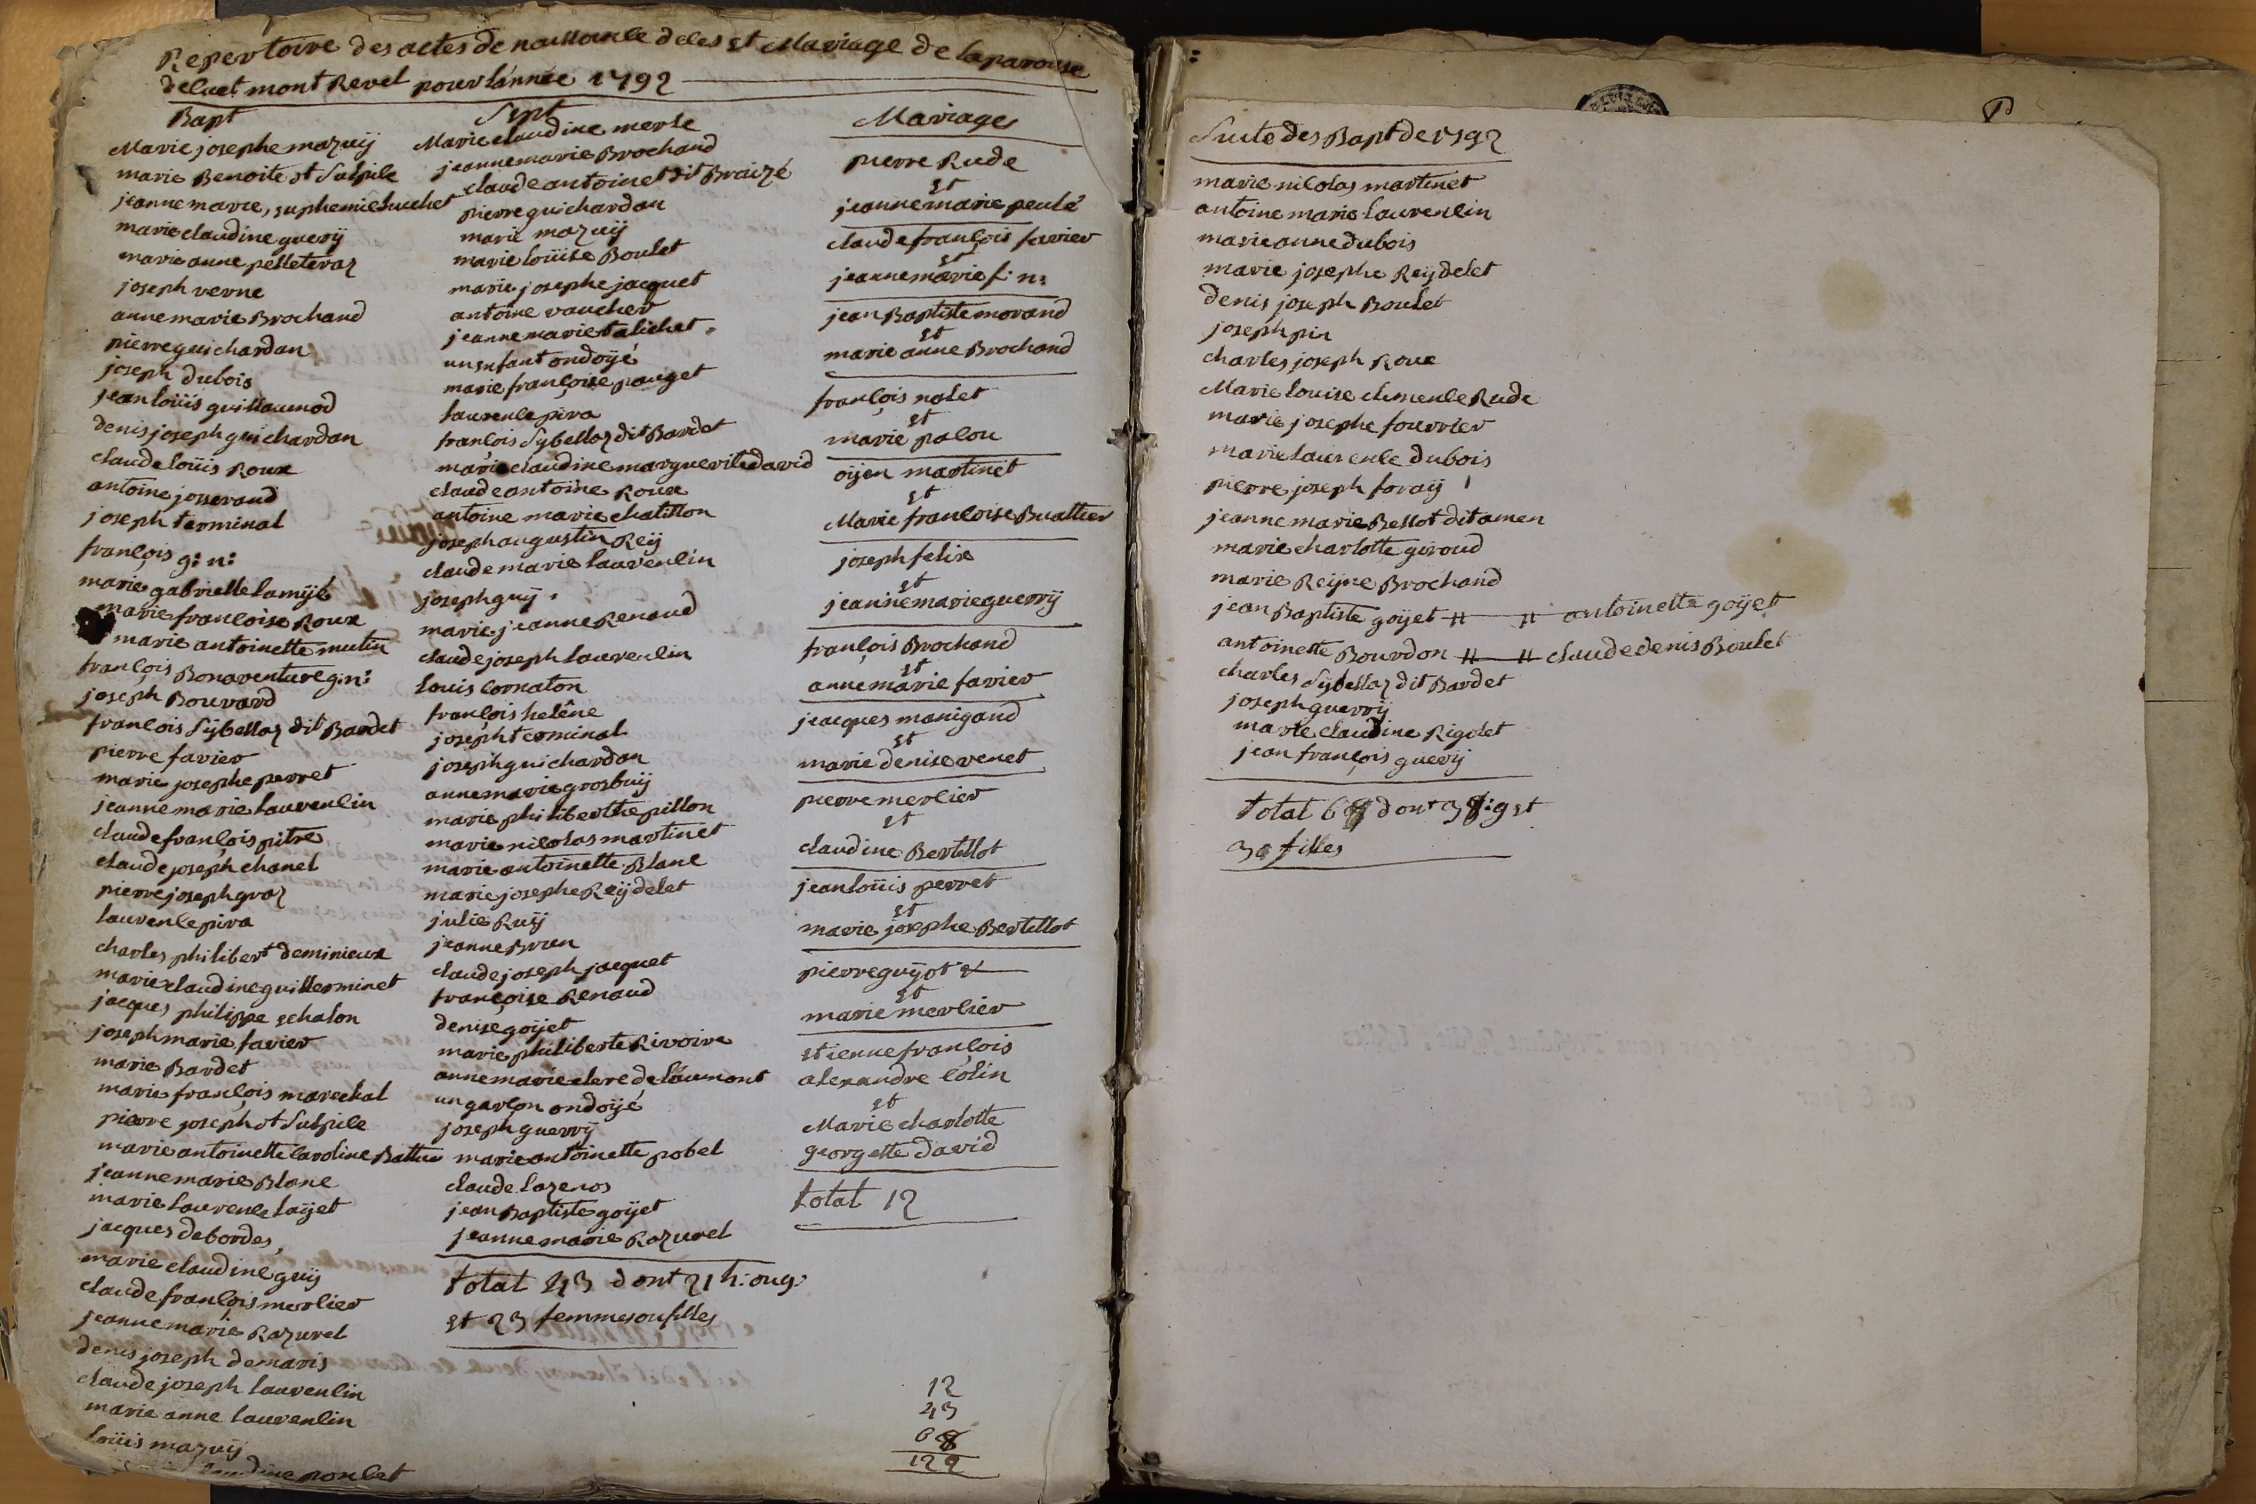 Repertoire des actes de naissance deces et Mariage de la paroisse
de cuet mont Revel pour l'année 1792
Bapt
Marie josephe mazuij
marie Benoite st Sulpice
jeanne marie, euphemie huchet
marie claudine guerij
marie anne pelleteraz
joseph verne
anne marie Brochand
pierre guichardan
joseph dubois
jean loüis guillaumod
denis joseph guichardan
claude loüis Roux
antoine josserand
joseph terminal
françois g: n:
marie gabrielle lamÿ
marie françoise Roux
marie antoinette mutin
françois Bonaventure g: n:
joseph Bouvard
françois Sÿbellaz dit Bardet
pierre favier
marie josephe perret
jeanne marie laurencin
claude françois pitre
claude joseph chanel
pierre joseph graz
laurence pira
charles philibert deminieux
marie claudine guillerminet
jacques philippe echalon
joseph marie favier
marie Bardet
marie françois marechal
pierre joseph st Sulpice
marie antoinette Caroline
jeanne marie Blanc
marie laurence laÿet
jacques debordes
marie claudine guij
claude françois merlier
jeanne marie Razurel
denis joseph demaris
claude joseph laurencin
marie anne laurencin
loüis mazuij
claudine poncet
Sept
Marie claudine merle
jeanne marie Brochand
claude antoinet dit Braizé
pierre guichardan
marie mazuij
marie loüise Boulet
marie josephe jacquet
antoine vaucher
jeanne marie talichet
un enfant ondoÿé
marie françoise pauget
laurence pira
françois Sÿbellaz dit Bardet
marie claudine marguerite david
claude antoine Roux
antoine marie chatillon
joseph augustin Reij
claude marie laurencin
joseph guij
marie jeanne Renaud
claude joseph laurencin
louis cornaton
françois helêne
joseph terminal
joseph guichardan
anne marie grosbuij
marie philiberthe pillon
marie nicolas martinet
marie antoinette Blanc
marie josephe Reijdelet
julie Ruij
jeanne Brun
claude joseph jacquet
françoise Renaud
denise goÿet
marie philiberte Rivoire
anne marie clerc de láumont
un garçon ondoÿé
joseph guerrij
marie antoinette pobel
claude lazeros
jean Baptiste goÿet
jeanne marie Razurel
total 43 dont 21 h: ou g:
et 23 femmes ou filles
Mariages
pierre Rude
et
jeanne marie peulé
claude françois favier
et
jeanne marie f: n:
jean Baptiste morand
et
marie anne Brochand
françois nolet
et
marie palou
oijen martinet
et
Marie françoise Buattier
joseph felix
et
jeanne marie guerrij
françois Brochand
et
anne marie favier
jacques manigand
et
marie denise venet
pierre merlier
et
claudine Bertillot
jean loüis perret
et
marie josephe Bertillot
pierre guÿot
et
marie merlier
etienne françois
alexandre Colin
et
Marie charlotte
georgette david
total 12
12
43
68
122
Suite des Bapt de 1792
marie nicolas martinet
antoine marie laurencin
marie anne dubois
marie josephe Reijdelet
denis joseph Boulet
joseph pin
charles joseph Roux
Marie louise clemence Rude
marie josephe fourrier
marie laurence dubois
pierre joseph foraij
jeanne marie Bellot dit amen
marie charlotte giroud
marie Reijne Brochand
jean Baptiste goÿet # # antoinette goÿet
antoinette Bourdon # # claude denis Boulet
charles Sÿbellaz dit Bardet
joseph guerrij
marie claudine Rigolet
jean françois guerij
total 68 dont 38: g et
30 filles